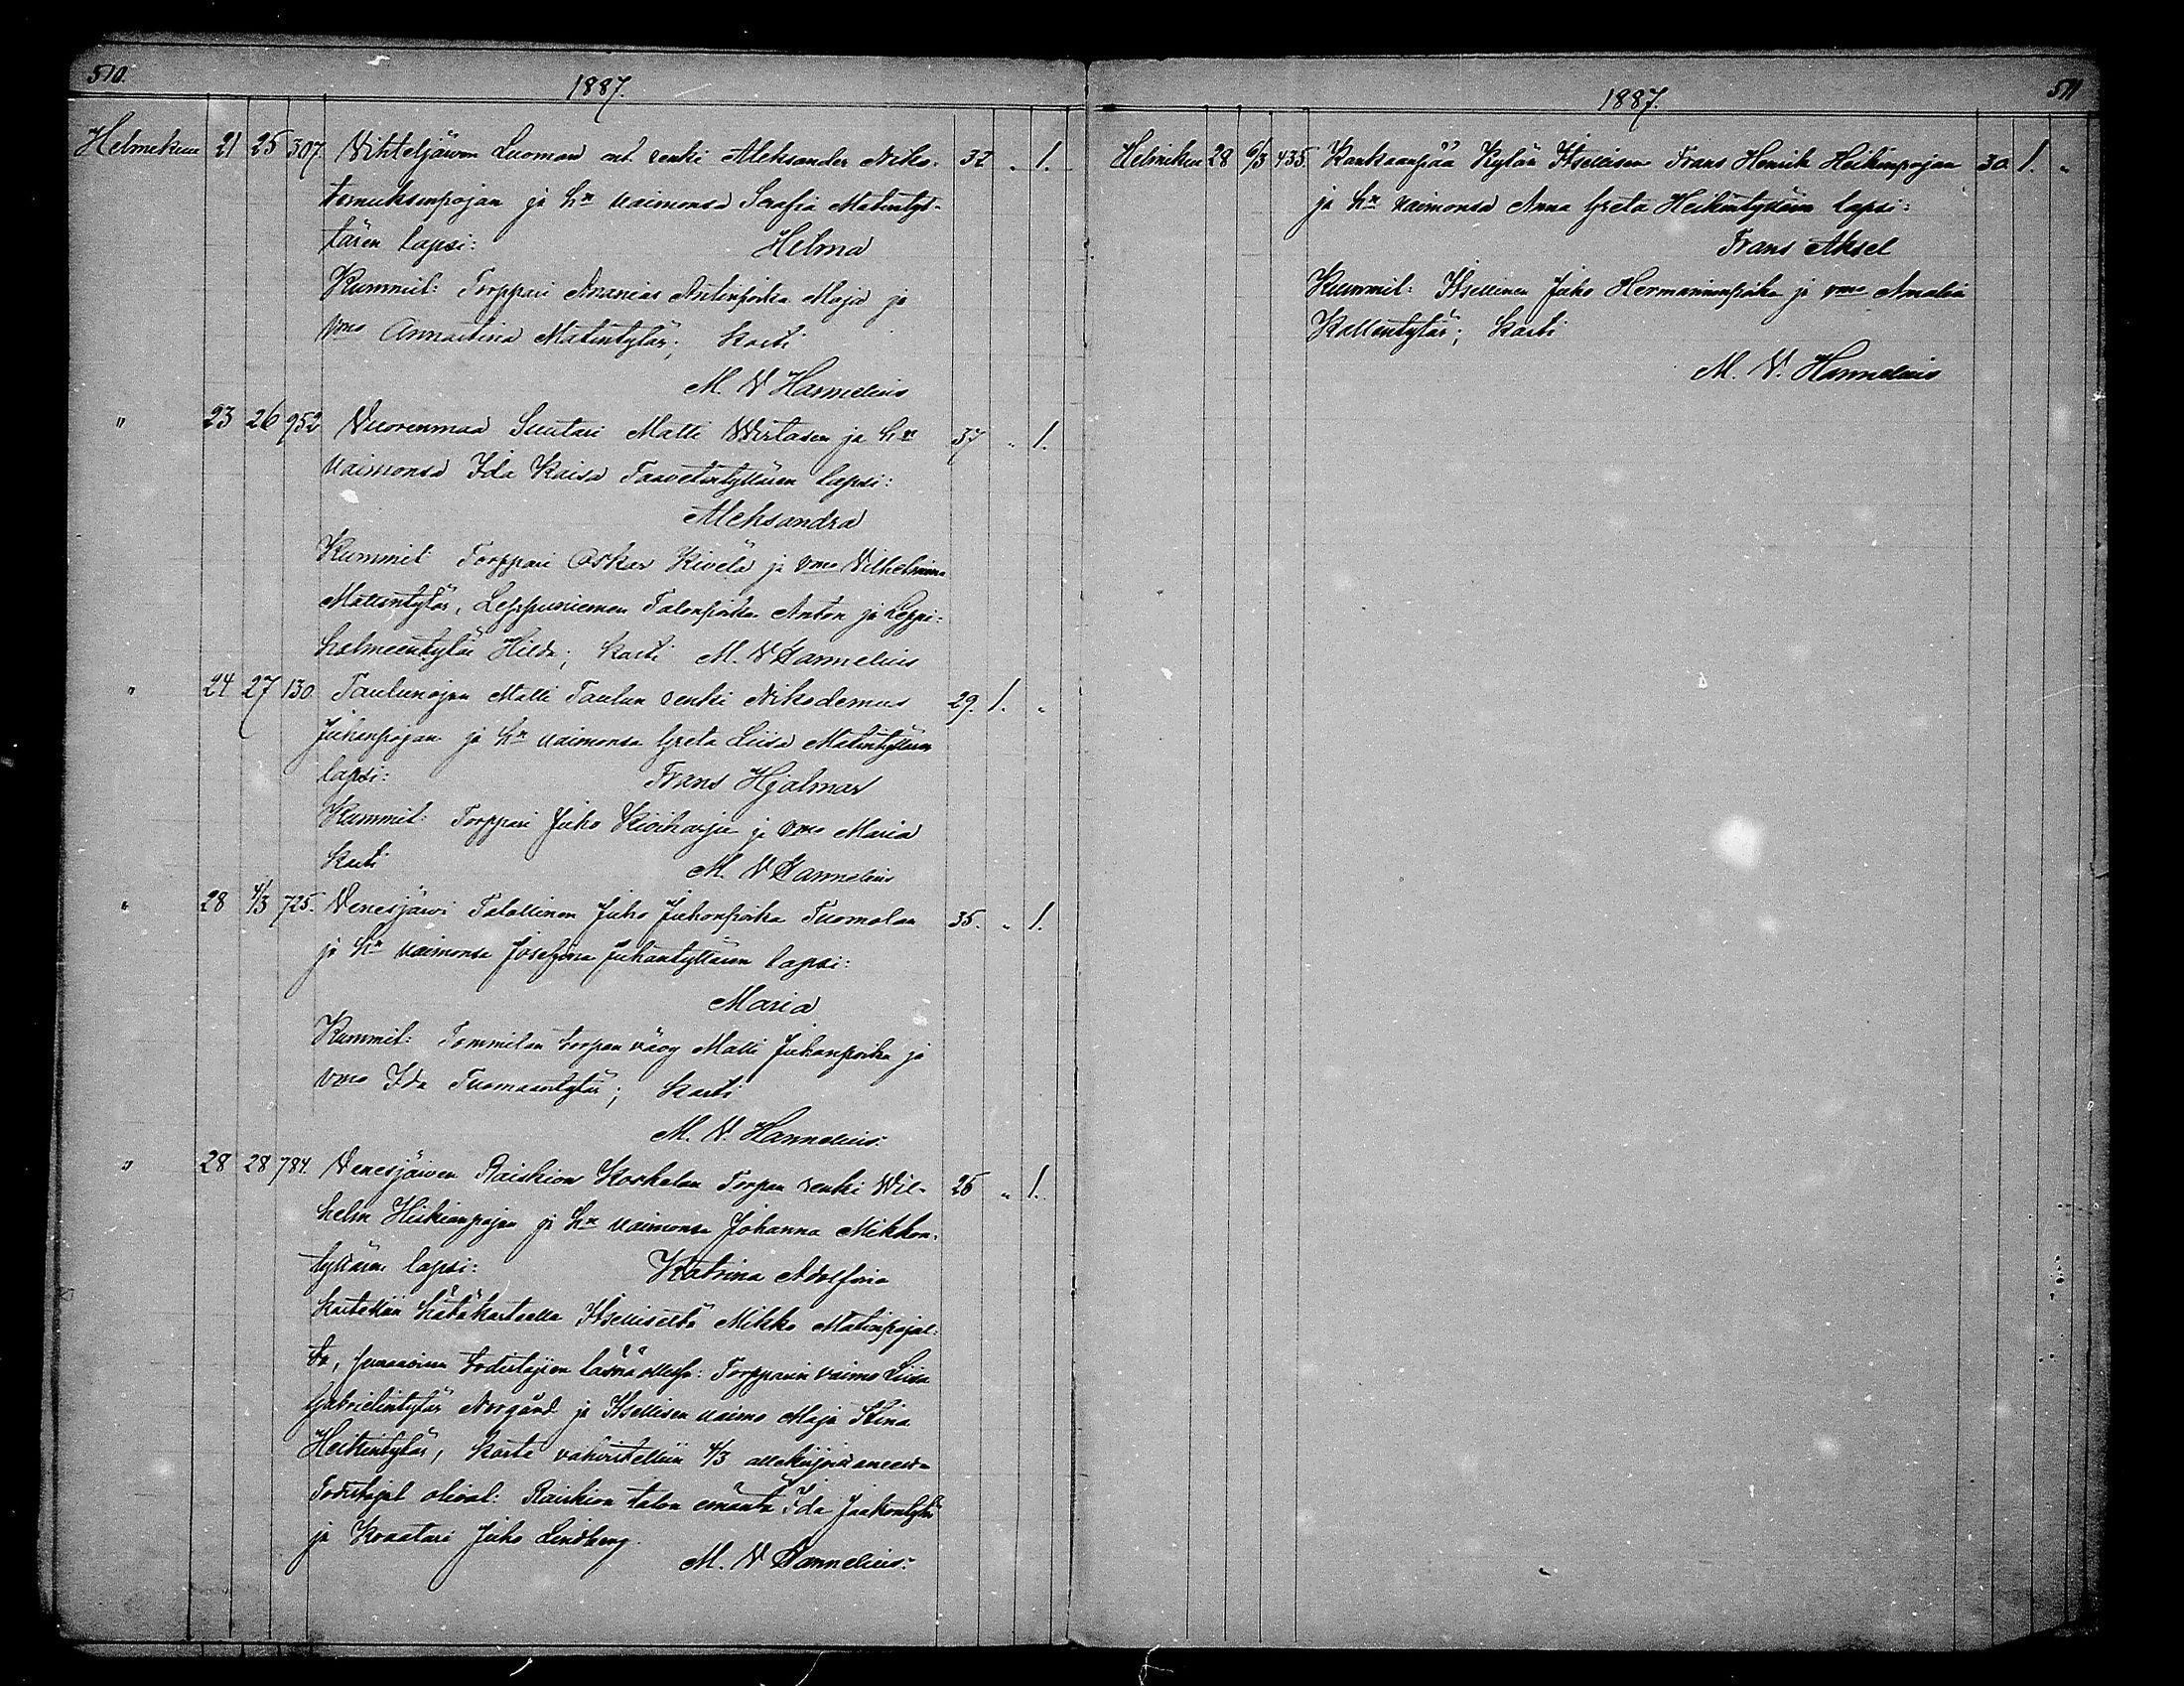 510.
1887.
Helmekuu 21 25 307. Vihteljärven Luoman ent. renki Aleksander Niko- 32 „ 1.
temuksenpojan ja hn vaimonsa Serafia Matintyt-
tären lapsi: Helma
Kummit: Torppari Ananias Antinpoika Maja ja
vmo Annastina Matintytär; kasti
M. V Hannelius
„ 23 26 952 Vuorenmaa Suutari Matti Wirtasen ja hn 37 „ 1.
vaimonsa Ida Kaisa Taavetintyttären lapsi:
Aleksandra
Kummit Torppari Oskar Kivelä ja vmo Vilhelmina
Matintytär, Leppuniemen Talonpoika Anton ja Leppi-
holmeentytär Hilda; kasti M. V Hannelius
„ 24 27 130. Taulunojan Matti Taulun renki Nikodemus 29. 1. „
Juhanpojan ja hn vaimonsa Greta Liisa Matintyttären
lapsi: Frans Hjalmar
Kummit: Torppari Juho Kiviharju ja vmo Maria
kasti M. V Hannelius
„ 28 4/3 725. Venesjärvi Talollinen Juho Juhonpoika Tuomolan 35. „ 1.
ja hn vaimonsa Josefina Juhantyttären lapsi:
Maria
Kummit: Tommilan torpan vävy Matti Juhanpoika ja
vmo Ida Tuomaantytär; kasti
M. V. Hannelius.
„ 28 28 784. Venesjärven Raiskion Koskelan Torpan renki Wil- 25 „ 1.
helm Hiskianpojan ja hn vaimonsa Johanna Mikkon-
tyttären lapsi: Katrina Adolfina
kastettiin hätäkasteella Itselliseltä Mikko Matinpojal-
ta, seuraavien todistajien läsnä ollessa: Torpparin vaimo Liisa
Gabrielintytär Norgård ja Itsellisen vaimo Maja Stina
Heikintytär, kaste vahvistettiin 4/3
Todistajat olivat: Raiskion talon emäntä Ida Jaakontytär
ja Kraatari Juho Lindberg.
M. V Hannelius.
1887.
511
Helmikuu 28 6/3 435. Kankaanpää Kylän Itsellisen Frans Henrik Heikinpojan 30. 1. „
ja hn vaimonsa Anna Greta Heikintyttären lapsi:
Frans Aksel
Kummit: Itsellinen Juho Hermanninpoika ja vmo Amalia
Kallentytär; kasti
M. V. Hannelius